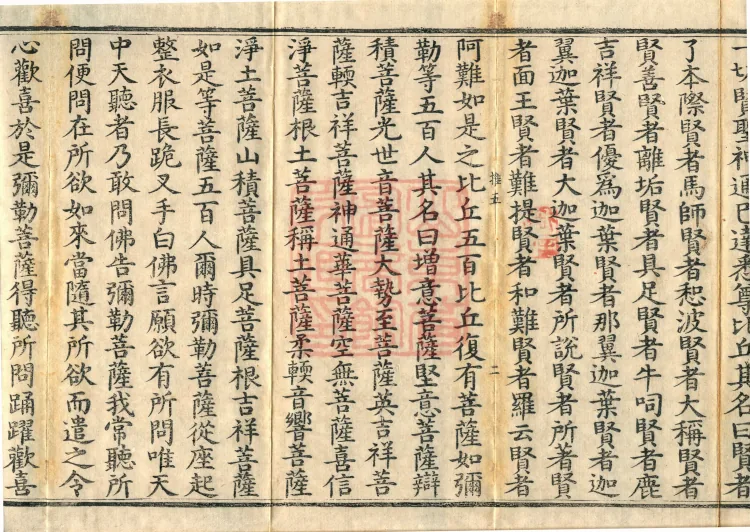 一切賢聖神通已達悉尊比丘其名曰賢者
了本際賢者馬師賢者恕波賢者大稱賢者
賢善賢者離垢賢者具足賢者牛呞賢者鹿
吉祥賢者優爲迦葉賢者那翼迦葉賢者迦
翼迦葉賢者大迦葉賢者所說賢者所著賢
者面王賢者難提賢者和難賢者羅云賢者
推五
二
阿難如是之比丘五百比丘復有菩薩如彌
勒等五百人其名曰增意菩薩堅意菩薩辯
積菩薩光世音菩薩大勢至菩薩英吉祥菩
薩輭吉祥菩薩神通華菩薩空無菩薩喜信
淨菩薩根土菩薩稱土菩薩柔輭音響菩薩
淨土菩薩山積菩薩具足菩薩根吉祥菩薩
如是等菩薩五百人爾時彌勒菩薩從座起
整衣服長跪叉手白佛言願欲有所問唯天
中天聽者乃敢問佛告彌勒菩薩我常聽所
問便問在所欲如來當隨其所欲而遣之令
心歡喜於是彌勒菩薩得聽所問踊躍歡喜